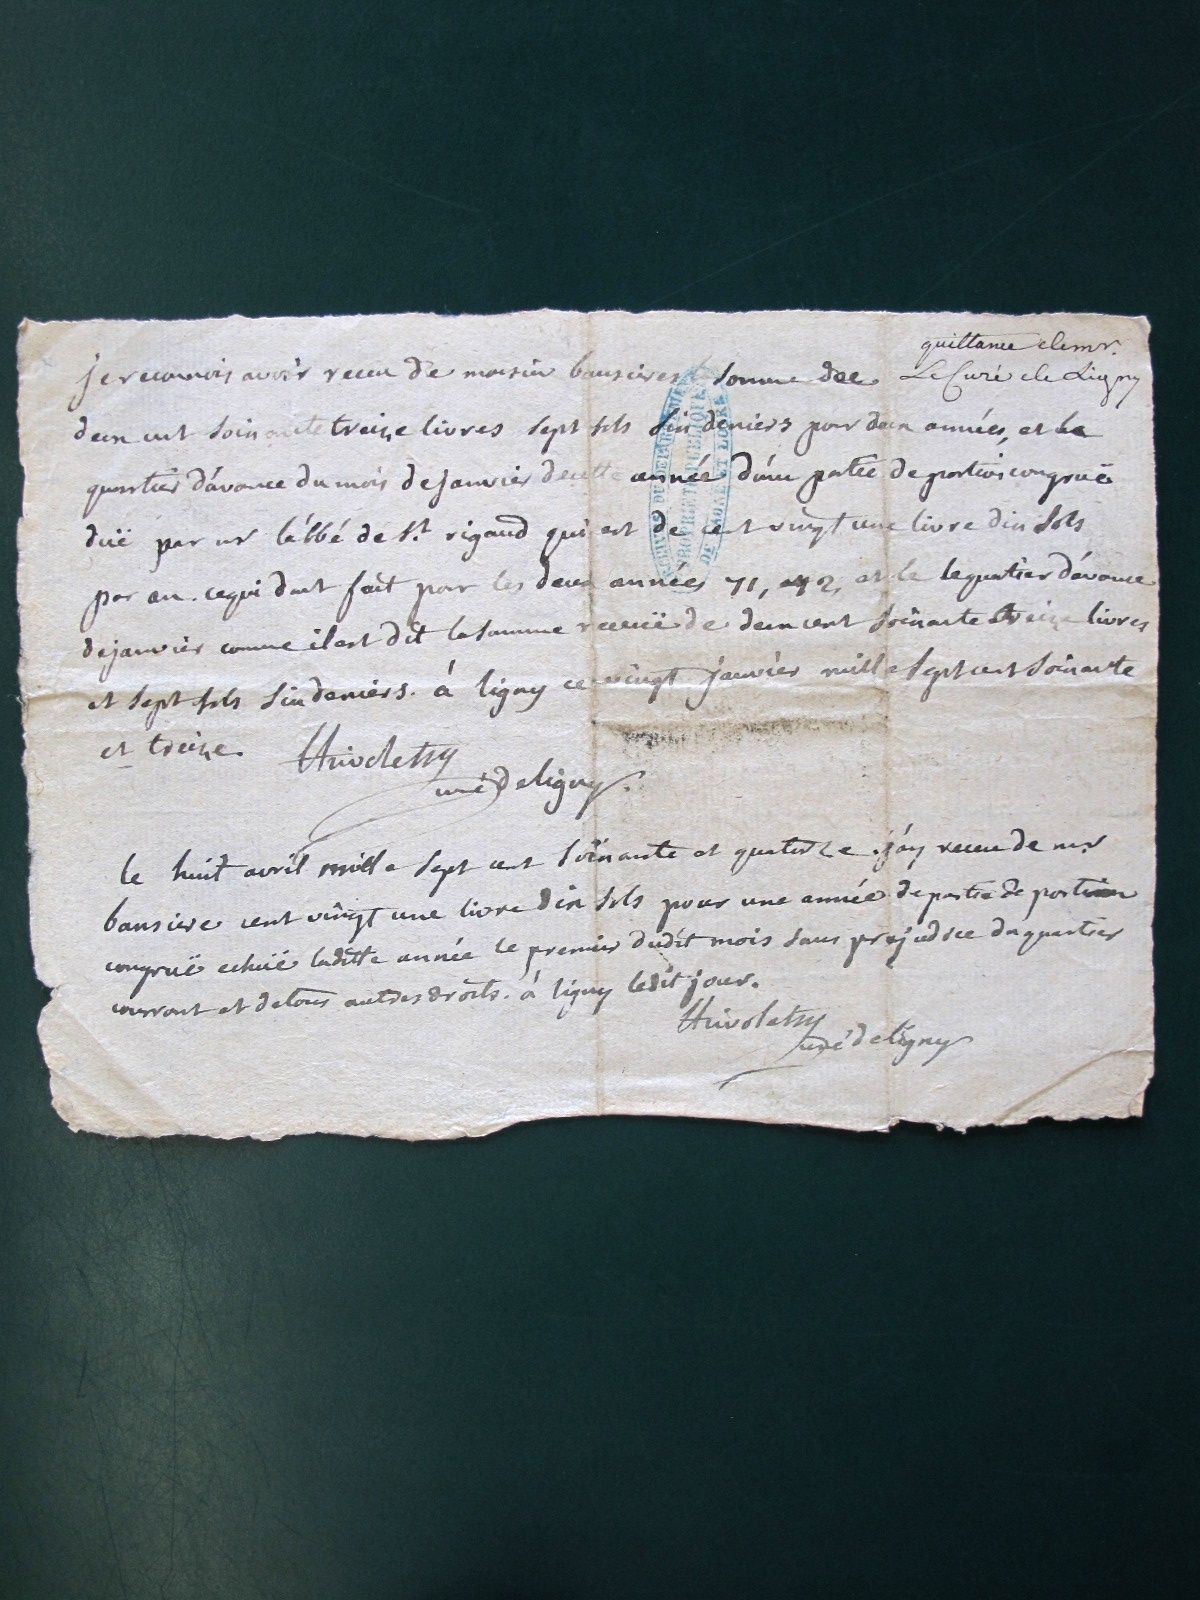 quittance de mr.
Le Curé de Ligny
je reconnois avoir receu de monsieur bansiere somme de
deux cent soixante treize livres sept sols six deniers pour deux années, et le
quartier d'avance du mois de janvier de cette année d'une partie de portion congruë
duë par mr l'abbé de St. rigaud qui est de cent vingt une livre dix sols
par an. ce qui dont fait pour les deux années 71, et 72, et le le quartier d'avance
de janvier comme il est dit la somme receuë de deux cent soixante treize livres
et sept sols six deniers. á ligny ce vingt janvier mille sept cent soixante
et treize
curé de ligny.
le huit avril mille sept cent soixante et quatorze. j'ay receu de mr
bansiere cent vingt une livre dix sols pour une année de partie de portion
congruë echuë laditte année le premier dudit mois sans prejudice du quartier
courrant et de tous autres droits. á ligny ledit jour.
curé de ligny
ARCHIVES DU DEPARTEMENT
PROPRIETE PUBLIQUE
DE SAONE ET LOIRE